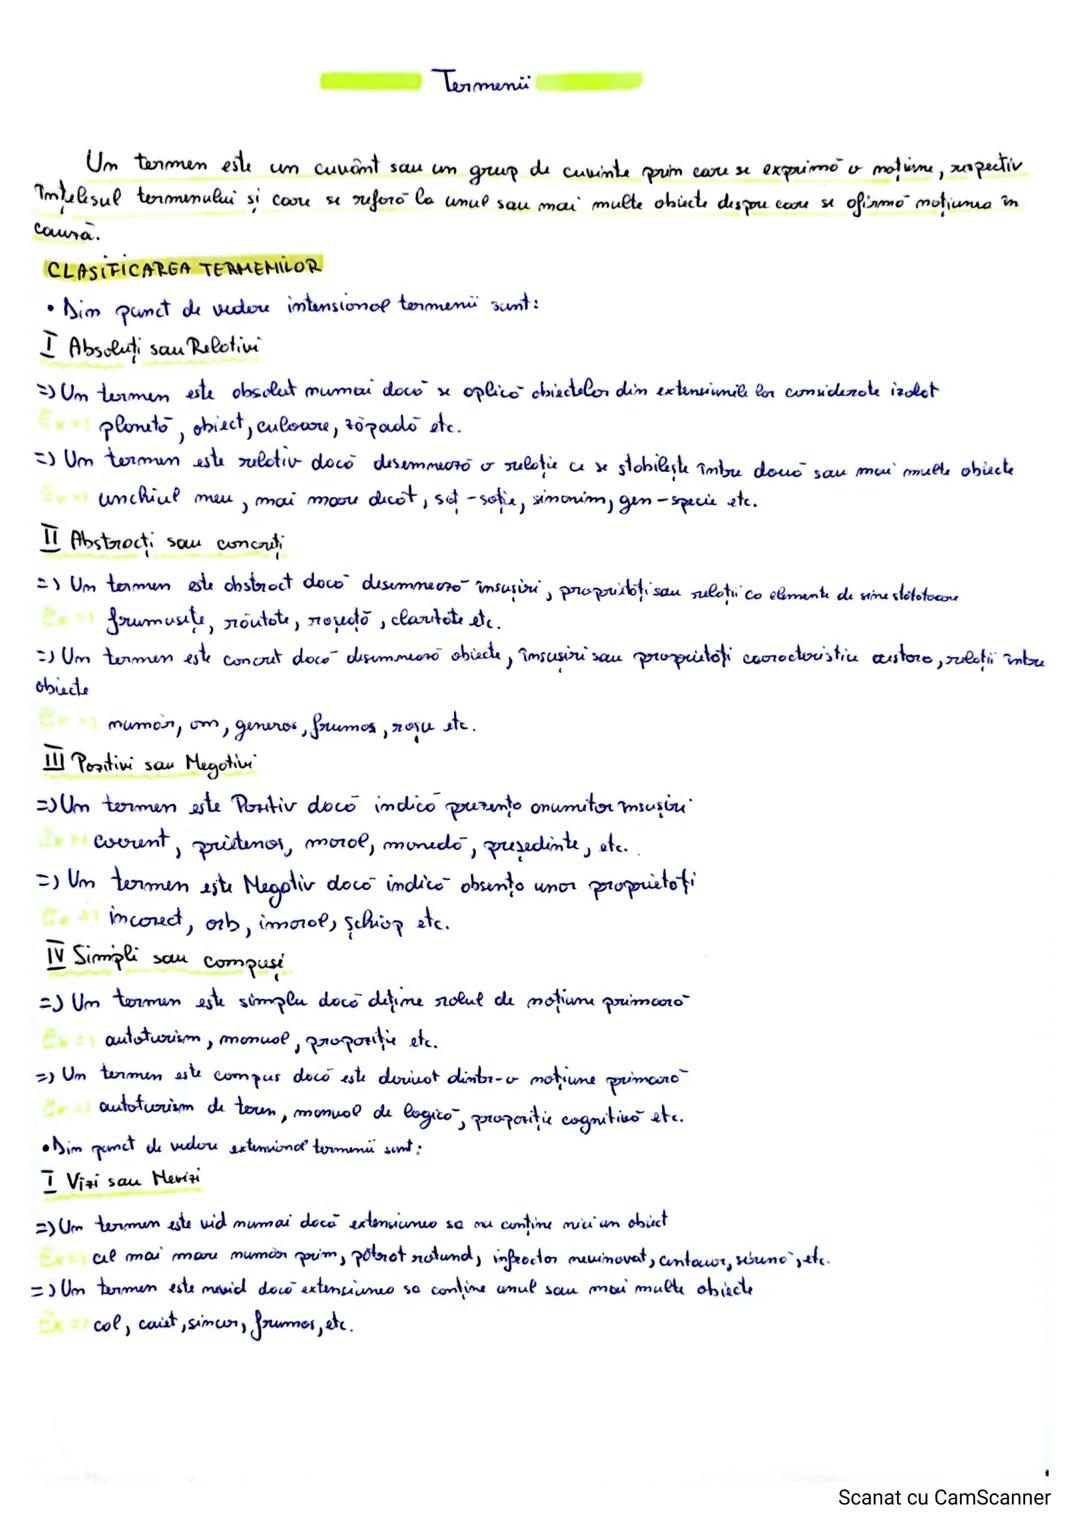 Termenii
Un termen este un cuvânt sau un grup de cuvinte prin care se exprimă o noțiune, respectiv
înțelesul termenului și care se referă la unul sau mai multe obiecte despre care se afirmă noțiunea în
cauză.
CLASIFICAREA TERMENILOR
• Din punct de vedere intensional termenii sunt:
I Absoluți sau Relativi
=) Un termen este absolut numai dacă se aplică obiectelor din extensiunile lor considerate izolat
Ex =) planetă, obiect, culoare, zăpadă etc.
=) Un termen este relativ dacă desemnează o relație ce se stabilește între două sau mai multe obiecte
Ex =) unchiul meu, mai mare decât, soț - soție, sinonim, gen - specie etc.
II Abstracți sau concreți
=) Un termen este abstract dacă desemnează însușiri, proprietăți sau relații ca elemente de sine stătătoare
Ex =) frumusețe, răutate, roșeață, claritate etc.
=) Un termen este concret dacă desemnează obiecte, însușiri sau proprietăți caracteristice acestora, relații între
obiecte
Ex =) număr, om, generos, frumos, roșu etc.
III Pozitivi sau Negativi
=) Un termen este Pozitiv dacă indică prezența anumitor însușiri
Ex =) coerent, prietenos, moral, monedă, președinte, etc.
=) Un termen este Negativ dacă indică absența unor proprietăți
Ex =) incorect, orb, imoral, șchiop etc.
IV Simpli sau compuși
=) Un termen este simplu dacă deține rolul de noțiune primară
Ex =) autoturism, manual, propoziție etc.
=) Un termen este compus dacă este derivat dintr-o noțiune primară
Ex =) autoturism de teren, manual de logică, propoziție cognitivă etc.
• Din punct de vedere extensional termenii sunt:
I Vizi sau Nevizi
=) Un termen este vid numai dacă extensiunea sa nu conține nici un obiect
Ex =) cel mai mare număr prim, pătrat rotund, infractor nevinovat, centaur, etc.
=) Un termen este nevid dacă extensiunea sa conține unul sau mai multe obiecte
Ex =) cal, caiet, sincer, frumos, etc.
Scanat cu CamScanner